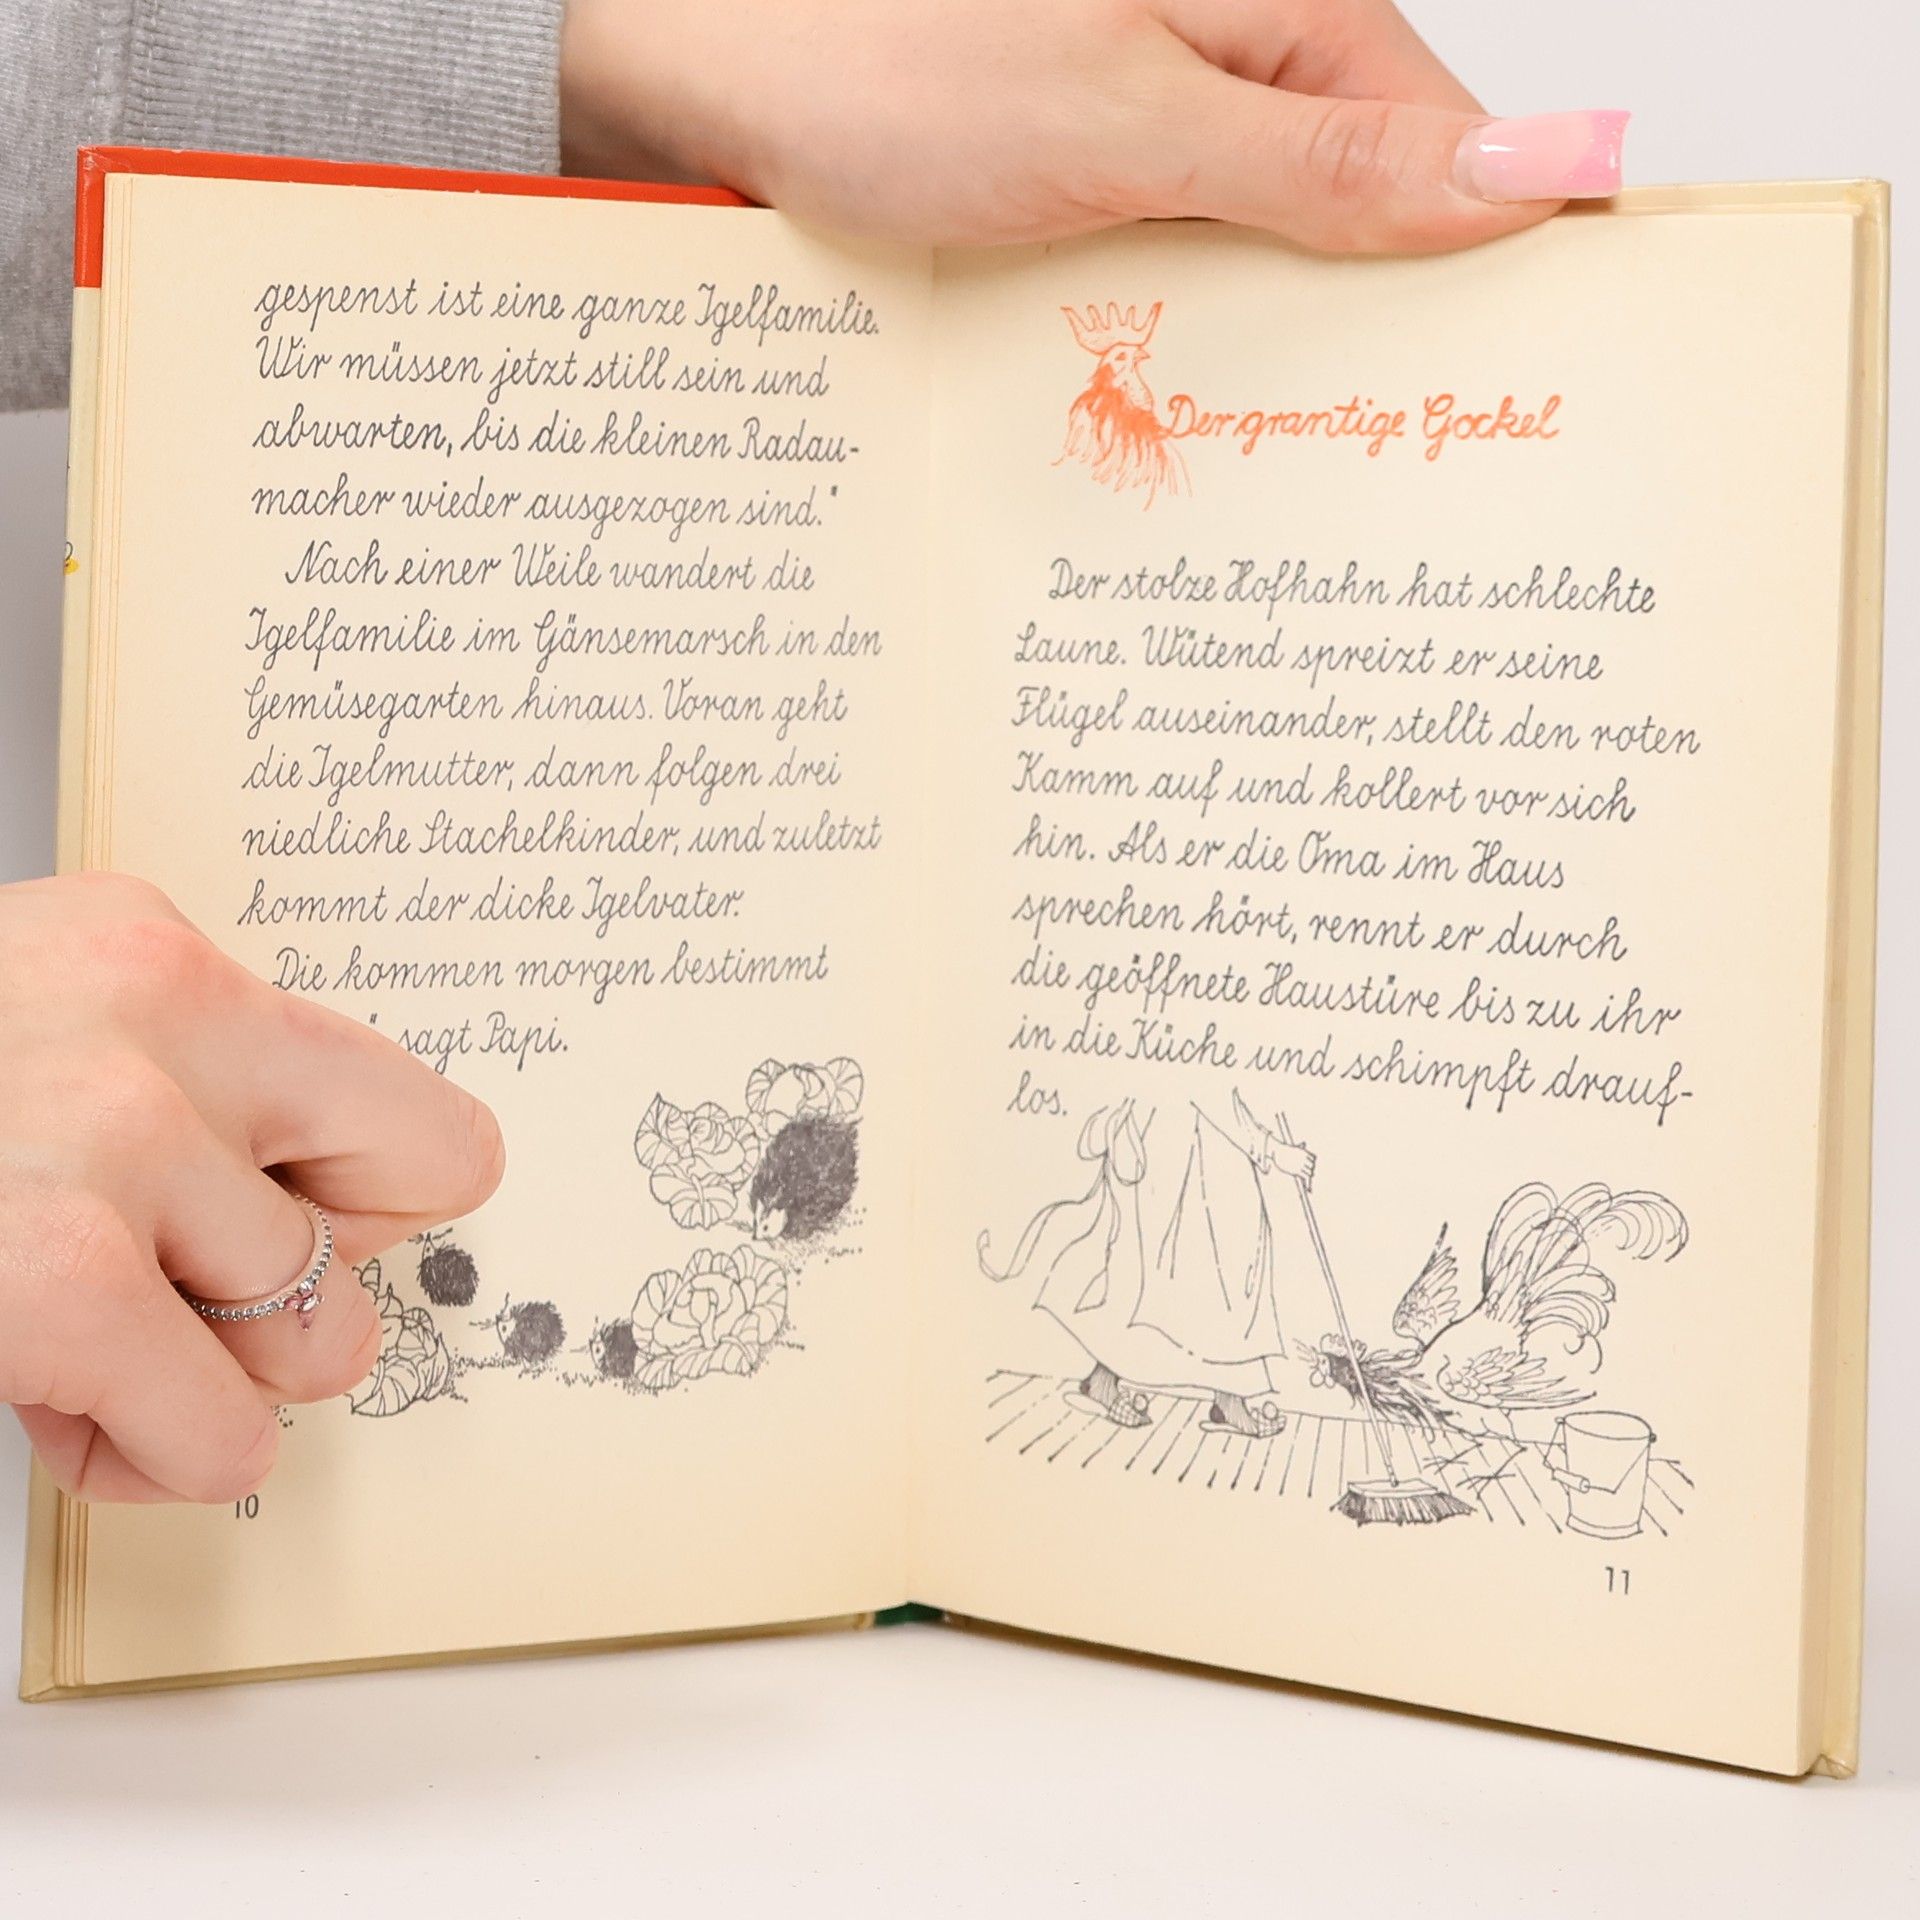 gespenst ist eine ganze Igelfamilie.
Wir müssen jetzt still sein und
abwarten, bis die kleinen Radau-
macher wieder ausgezogen sind."
Nach einer Weile wandert die
Igelfamilie im Gänsemarsch in den
Gemüsegarten hinaus. Voran geht
die Igelmutter, dann folgen drei
niedliche Stachelkinder, und zuletzt
kommt der dicke Igelvater.
Die kommen morgen bestimmt
" sagt Papi.
10
Der grantige Gockel
Der stolze Hofhahn hat schlechte
Laune. Wütend spreizt er seine
Flügel auseinander, stellt den roten
Kamm auf und kollert vor sich
hin. Als er die Oma im Haus
sprechen hört, rennt er durch
die geöffnete Haustüre bis zu ihr
in die Küche und schimpft drauf-
los.
11